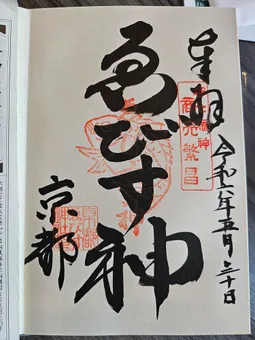 奉拝
商売繁昌
令和
年五月三十日
ゑびす神
京都